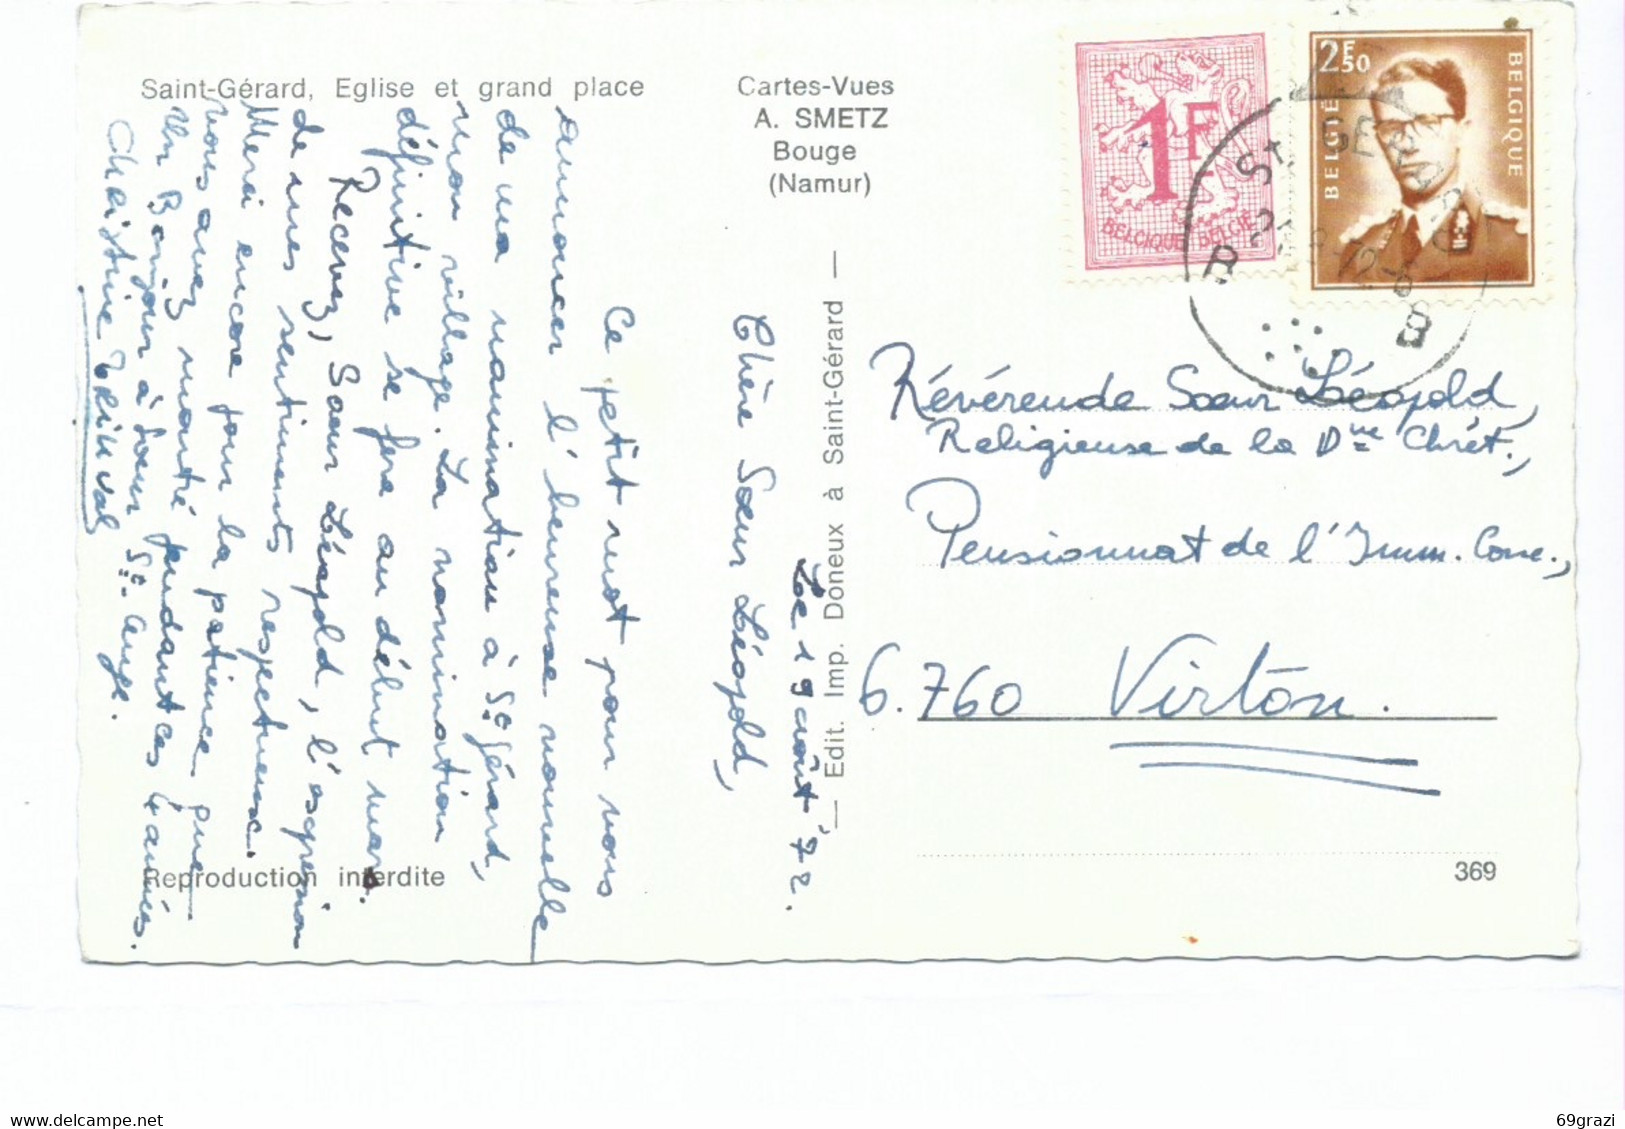 Saint-Gérard, Eglise et grand place
Cartes-Vues
A. SMETZ
Bouge
(Namur)
1F
BELGIQUE BELGIË
2F50
BELGIË
BELGIQUE
St. GERARD
B B
Le 19 août 72.
Chère Sœur Léopold,
Ce petit mot pour vous
annoncer l'heureuse nouvelle
de ma nomination à St Gérard,
mon village. La nomination
définitive se fera au début mars.
Recevez, Sœur Léopold, l'expression
de mes sentiments respectueux.
Merci encore pour la patience que
vous avez montré pendant ces 4 années.
Un Bonjour à Sœur St. Ange.
Christine
— Edit. Imp. Doneux à Saint-Gérard —
Révérende Sœur Léopold,
Religieuse de la Dne Chrét.,
Pensionnat de l'Imm. Conc.,
6.760 Virton.
Reproduction interdite
369
delcampe.net
69grazi